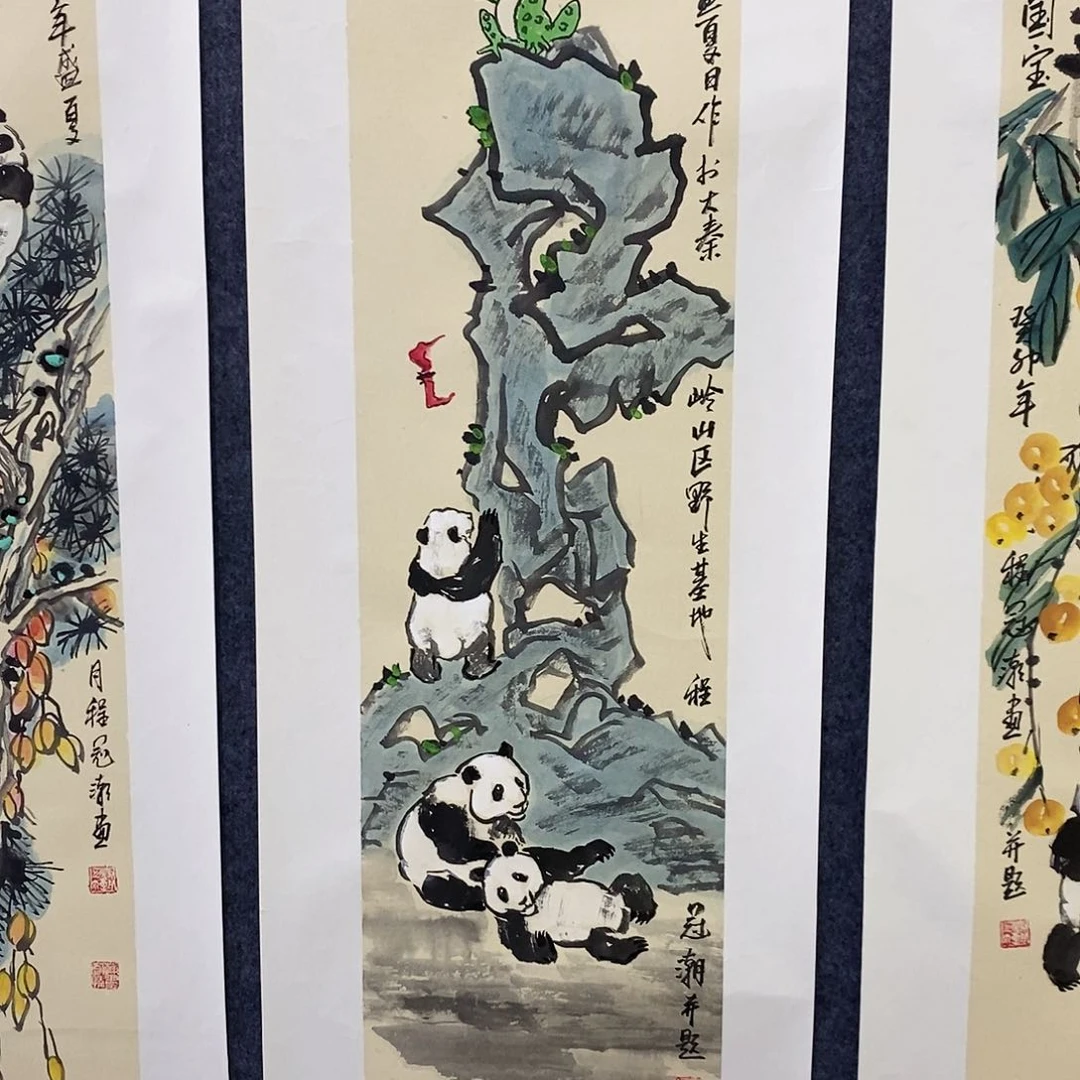 年盛夏
月程冠潮画
夏日作于大秦
岭山区野生基地 程
冠潮并题
国宝
癸卯年
程冠潮画
并题